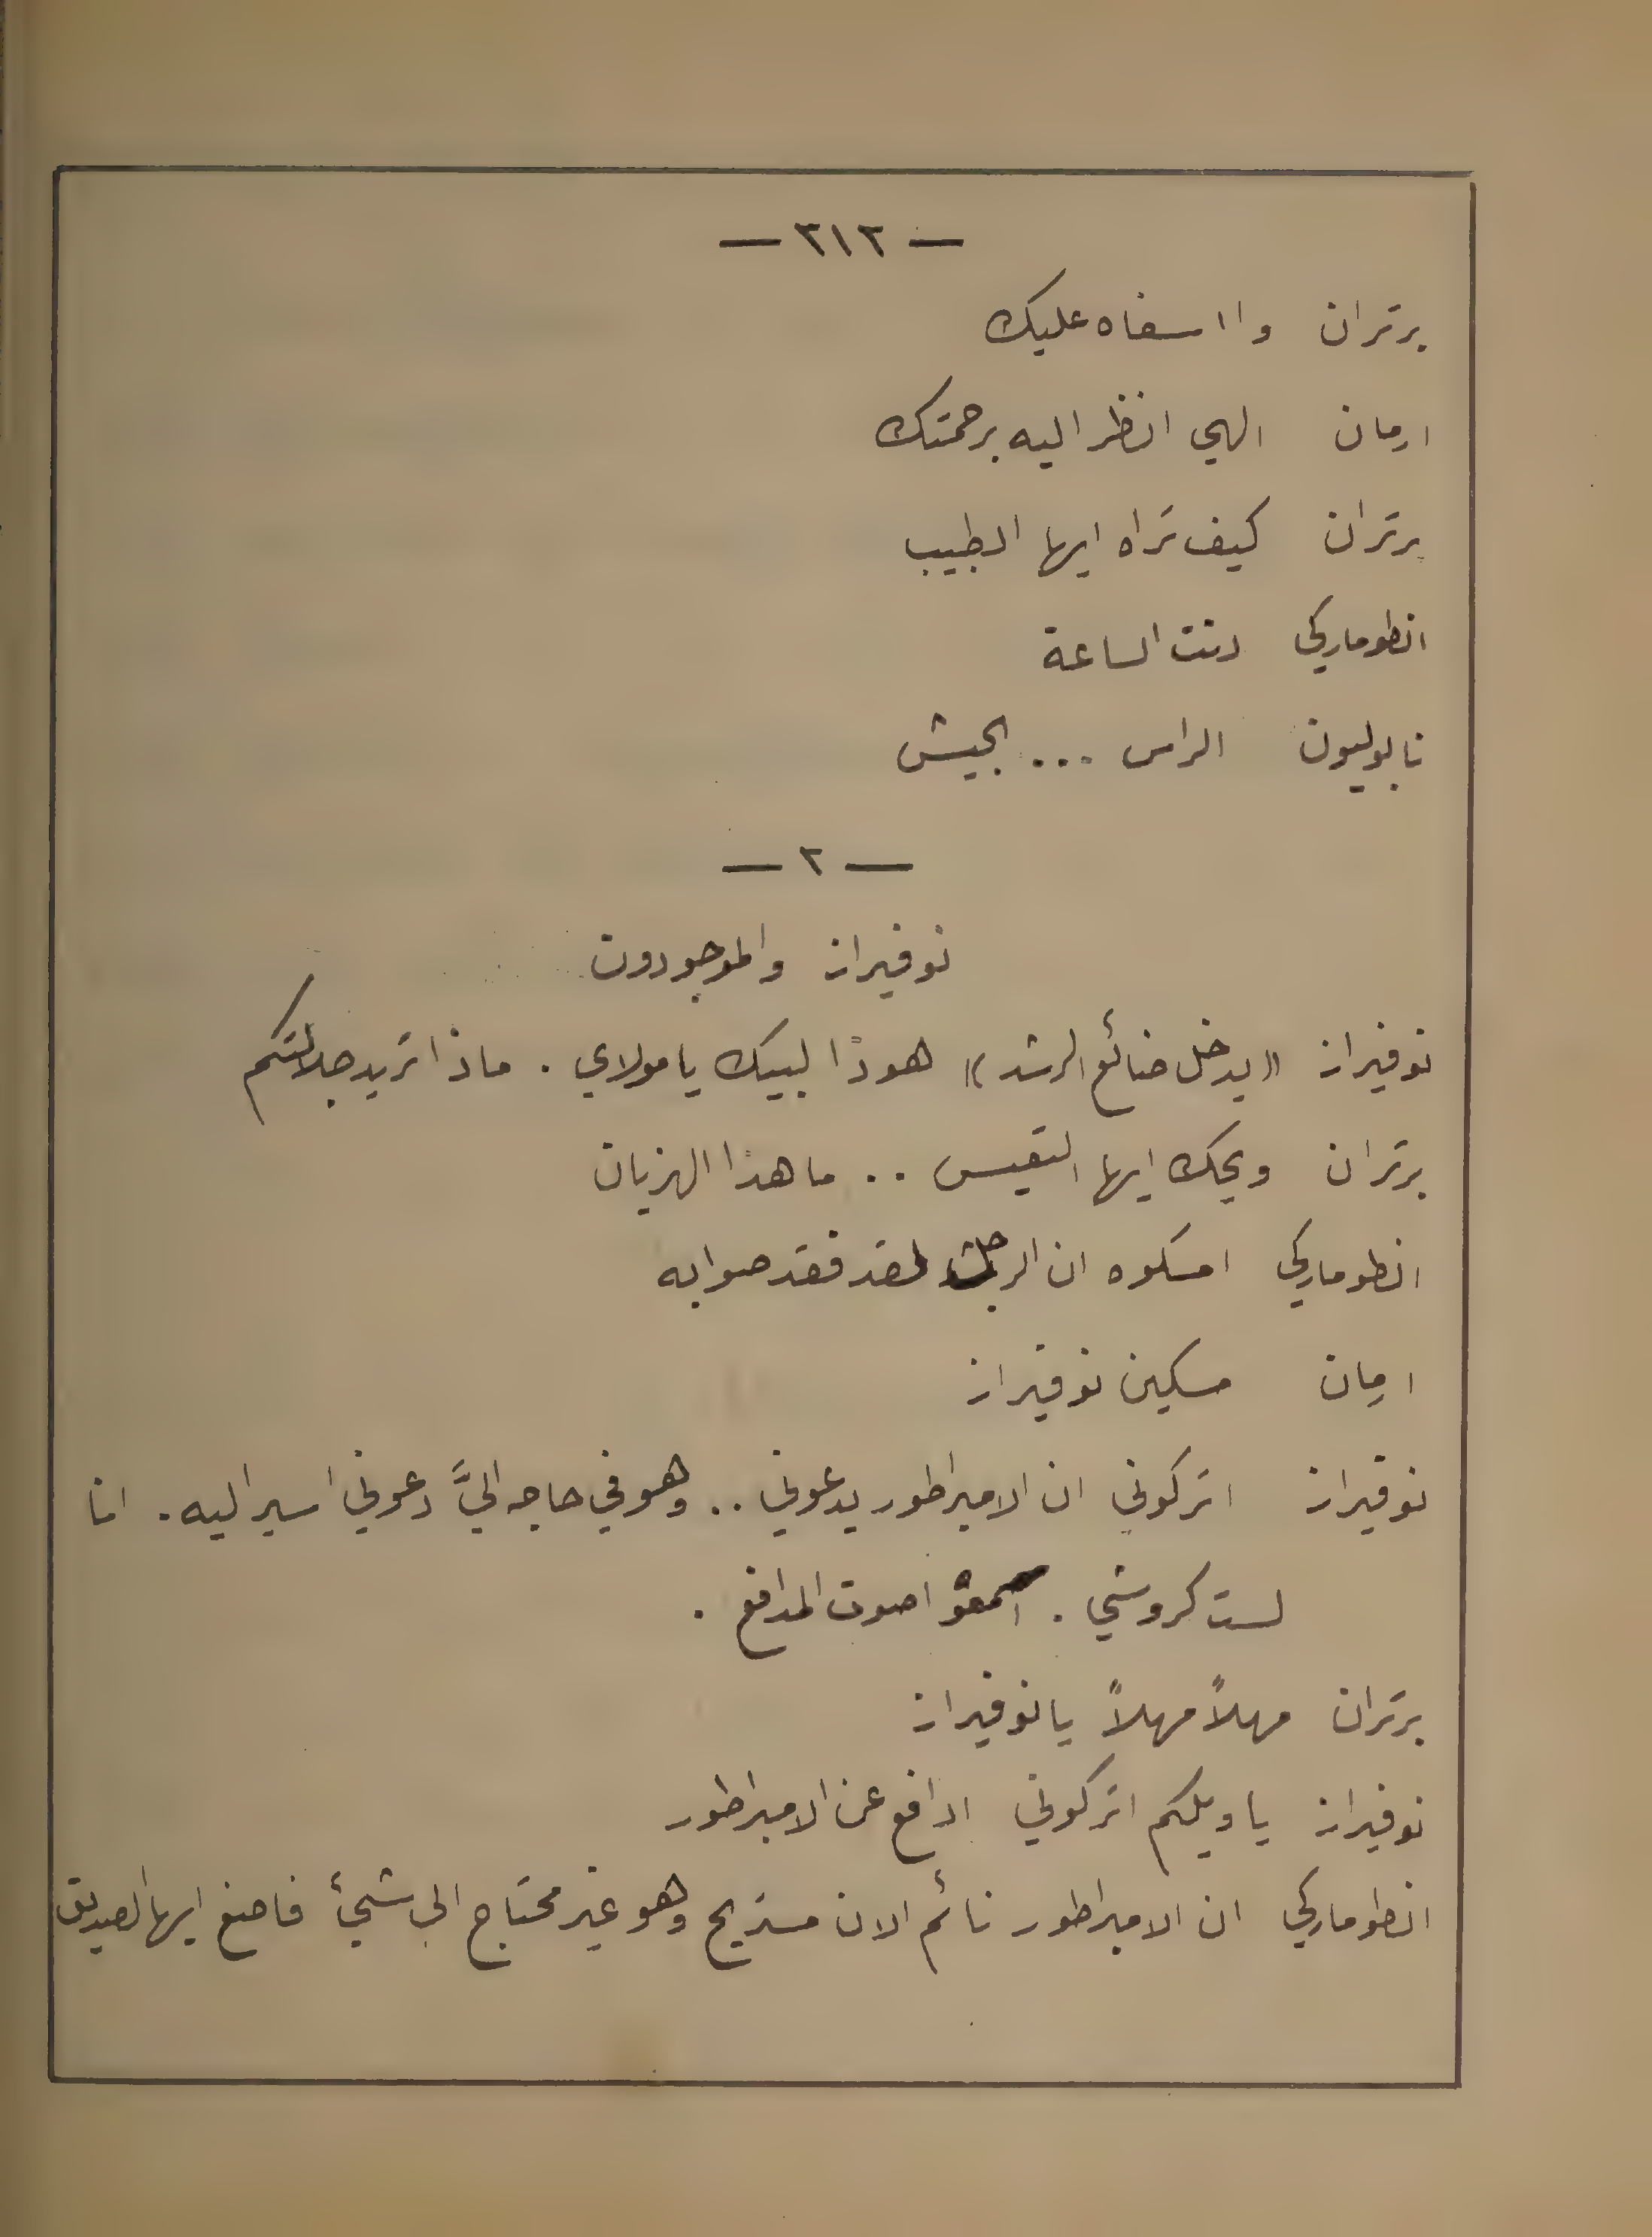 — ٣١٣ —
برتران وا اسفاه عليك
ارمان الهي انظر اليه برحمتك
برتران كيف تراه ايها الطبيب
انطوماركي دنت الساعة
نابوليون الراس ... الجيش
— ٢ —
نوفيراز والموجودون
نوفيراز «يدخل ضائع الرشد» هوذا لبيك يا مولاي . ماذا تريد جلالتكم
برتران ويحك ايها التعيس .. ما هذا الهزيان
انطوماركي امسكوه ان الرجل لقد فقد صوابه
ارمان مسكين نوفيراز
نوفيراز اتركوني ان الامبراطور يدعوني .. وهو في حاجه اليَّ دعوني اسير اليه . انا
لست كروشي . اسمعوا صوت المدافع .
برتران مهلاً مهلاً يا نوفيراز
نوفيراز يا ويلكم اتركوني ادافع عن الامبراطور
انطوماركي ان الامبراطور نائم الان مستريح وهو غير محتاج الى شيئ فاصغ ايها الصديق